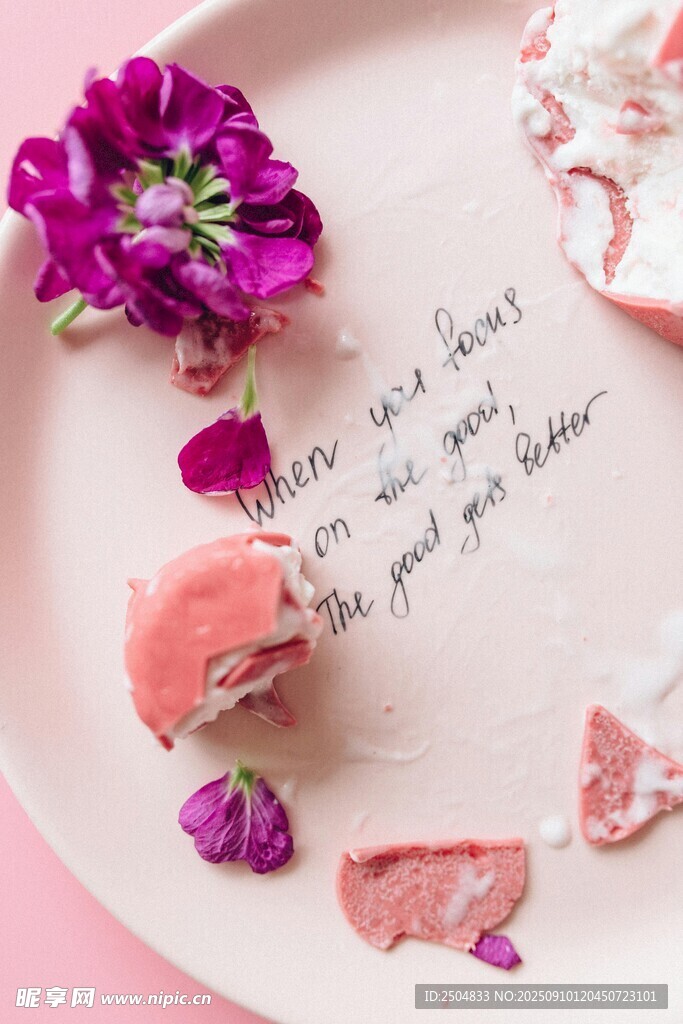 When your focus
on the good,
The good gets better
昵享网 www.nipic.cn
ID:2504833 NO:20250910120450723101